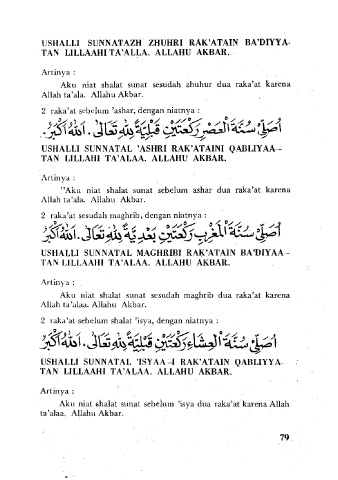 USHALLI SUNNATAZH ZHUHRI RAK'ATAIN BA'DIYYA-
TAN LILLAAHI TA'ALLA. ALLAHU AKBAR.
Artinya :
Aku niat shalat sunat sesudah zhuhur dua raka'at karena
Allah ta'ala. Allahu Akbar.
2 raka'at sebelum 'ashar, dengan niatnya :
اُصَلِّيْ سُنَّةَ الْعَصْرِ رَكْعَتَيْنِ قَبْلِيَّةً لِلّٰهِ تَعَالَى . اَللهُ اَكْبَرُ .
USHALLI SUNNATAL 'ASHRI RAK'ATAINI QABLIYAA-
TAN LILLAHI TA'ALAA. ALLAHU AKBAR.
Artinya :
"Aku niat shalat sunat sebelum ashar dua raka'at karena
Allah ta'ala. Allahu Akbar.
2 raka'at sesudah maghrib, dengan niatnya :
اُصَلِّيْ سُنَّةَ الْمَغْرِبِ رَكْعَتَيْنِ بَعْدِيَّةً لِلّٰهِ تَعَالَى . اَللهُ اَكْبَرُ
USHALLI SUNNATAL MAGHRIBI RAK'ATAIN BA'DIYAA-
TAN LILLAAHI TA'ALAA. ALLAHU AKBAR.
Artinya :
Aku niat shalat sunat sesudah maghrib dua raka'at karena
Allah ta'alaa. Allahu Akbar.
2 raka'at sebelum shalat 'isya, dengan niatnya :
اُصَلِّيْ سُنَّةَ الْعِشَاءِ رَكْعَتَيْنِ قَبْلِيَّةً لِلّٰهِ تَعَالَى . اَللهُ اَكْبَرُ
USHALLI SUNNATAL 'ISYAA-I RAK'ATAIN QABLIYYA-
TAN LILLAAHI TA'ALAA. ALLAHU AKBAR.
Artinya :
Aku niat shalat sunat sebelum 'isya dua raka'at karena Allah
ta'alaa. Allahu Akbar.
79